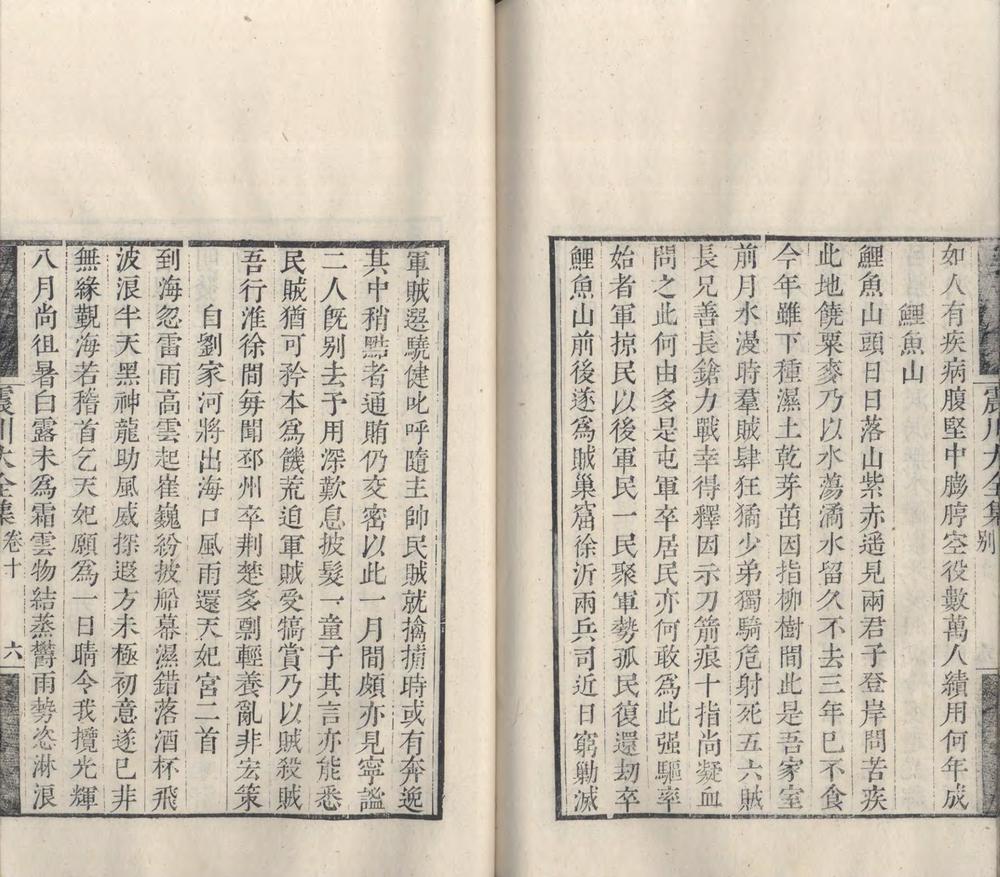 震川大全集別
如人有疾病腹堅中膨脝空役數萬人績用何年成
鯉魚山
鯉魚山頭日日落山紫赤遥見兩君子登岸問苦疾
此地饒粟麥乃以水蕩潏水留久不去三年已不食
今年雖下種濕土乾芽茁因指柳樹間此是吾家室
前月水漫時羣賊肆狂獝少弟獨騎危射死五六賊
長兄善長鎗力戰幸得釋因示刀箭痕十指尚凝血
問之此何由多是屯軍卒居民亦何敢爲此强驅率
始者軍掠民以後軍民一民聚軍勢孤民復還刧卒
鯉魚山前後遂爲賊巢窟徐沂兩兵司近日窮勦滅
軍賊選驍健叱呼隨主帥民賊就擒捕時或有奔逸
其中稍黠者通賄仍交密以此一月間頗亦見寧謐
二人旣别去予用深歎息披髮一童子其言亦能悉
民賊猶可矜本爲饑荒迫軍賊受犒賞乃以賊殺賊
吾行淮徐間每聞邳州卒荆楚多剽輕養亂非宏策
自劉家河將出海口風雨還天妃宮二首
到海忽雷雨高雲起崔巍紛披船幕濕錯落酒杯飛
波浪半天黑神龍助風威探遐方未極初意遂已非
無緣觀海若稽首乞天妃願爲一日晴令我攬光輝
八月尚徂暑白露未爲霜雲物結蒸鬱雨勢恣淋浪
震川大全集卷十 六